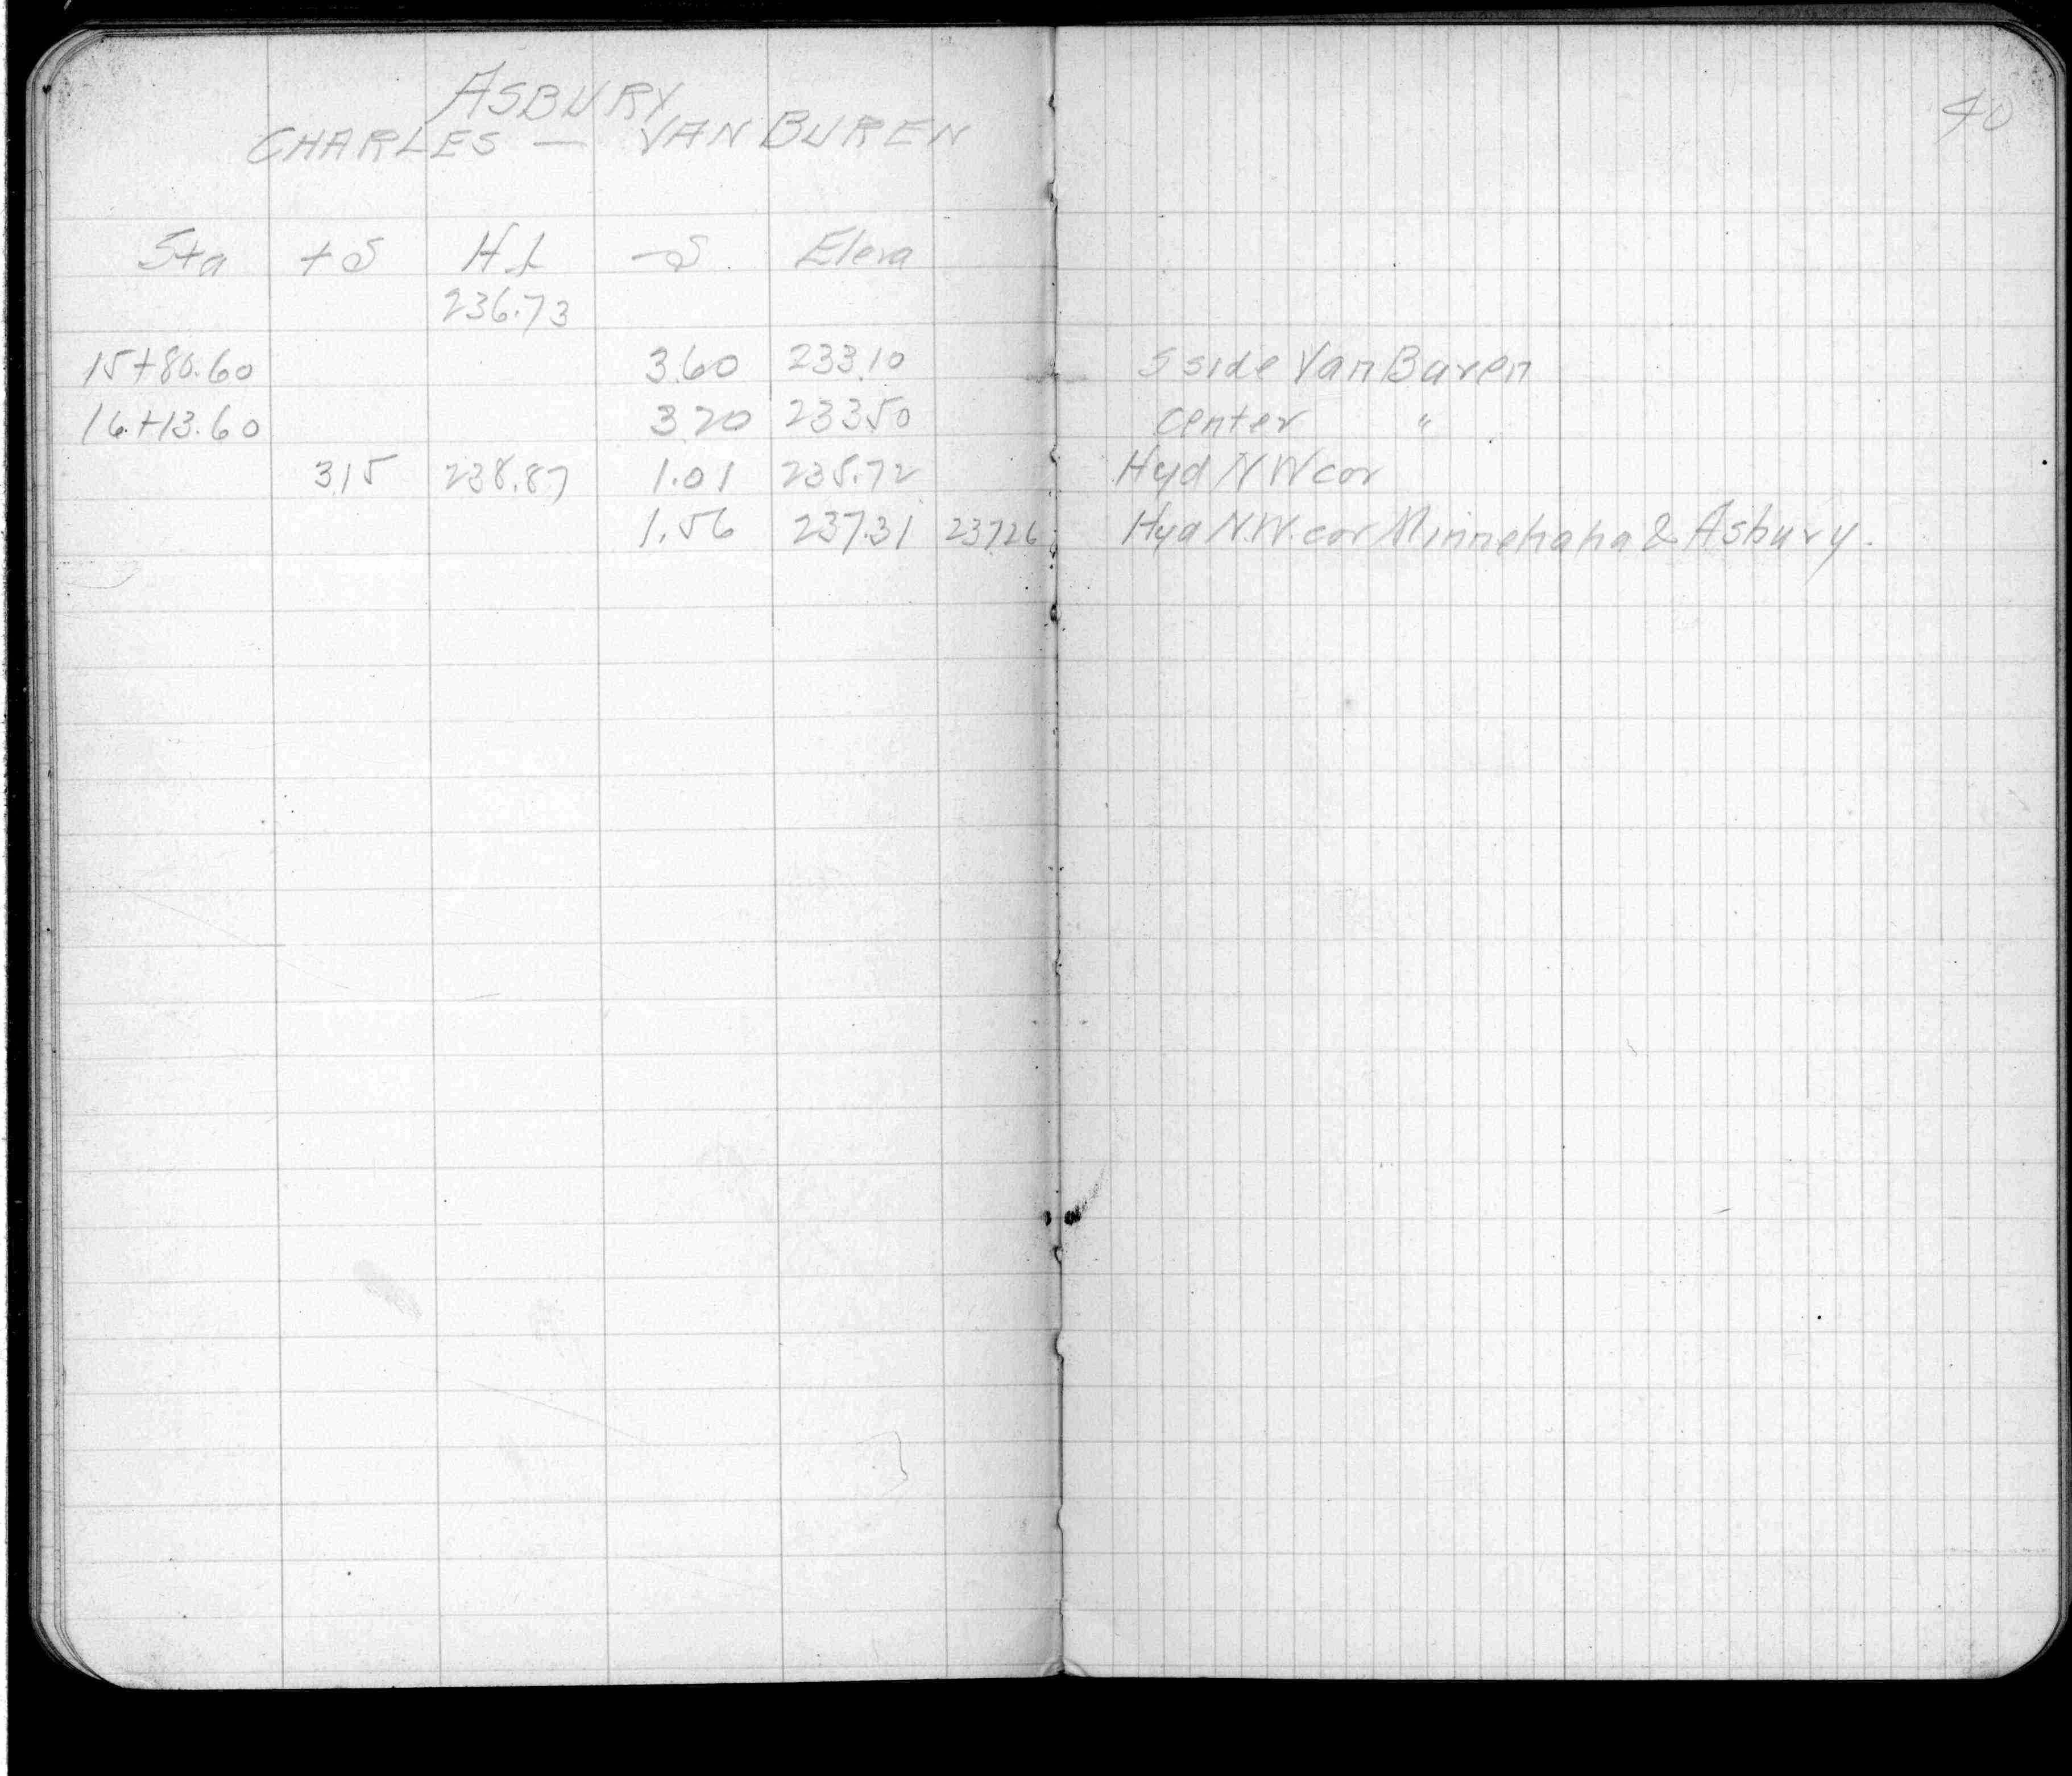 ASBURY
CHARLES — VAN BUREN
40
Sta +S H.I. -S Eleva
236.73
15+80.60 3.60 233.10 S side Van Buren
16+13.60 3.20 233.50 center "
3.15 238.87 1.01 235.72 Hyd N W cor
1.56 237.31 237.26 Hyd N.W. cor Minnehaha & Asbury.